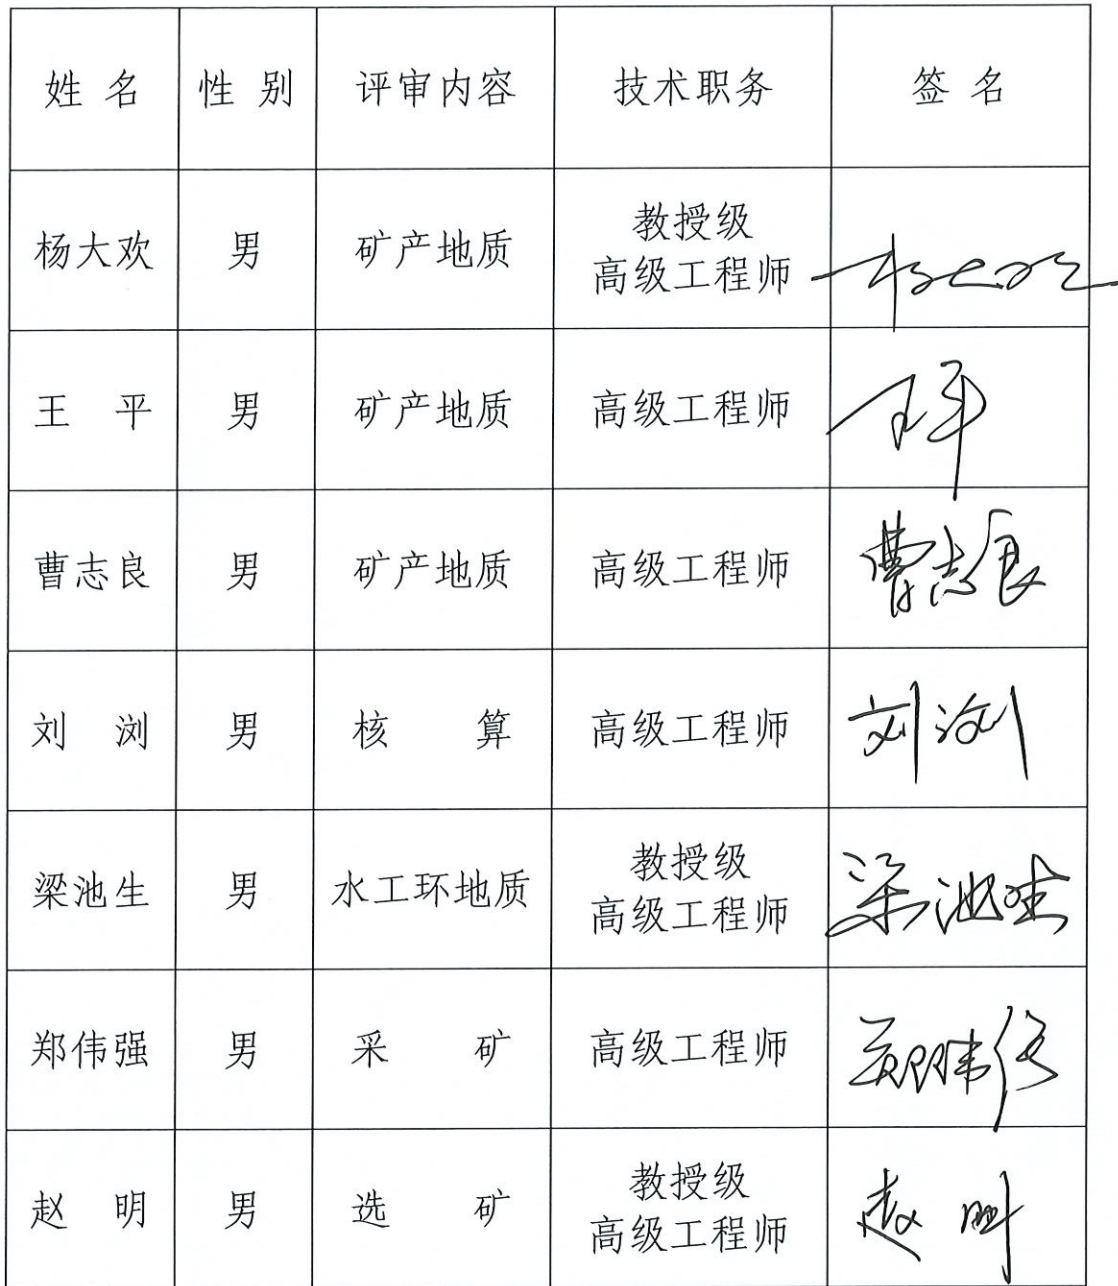 姓 名 性 别 评审内容 技术职务 签 名
杨大欢 男 矿产地质 教授级
高级工程师 杨大欢
王 平 男 矿产地质 高级工程师 王平
曹志良 男 矿产地质 高级工程师 曹志良
刘 浏 男 核 算 高级工程师 刘浏
梁池生 男 水工环地质 教授级
高级工程师 梁池生
郑伟强 男 采 矿 高级工程师 郑伟强
赵 明 男 选 矿 教授级
高级工程师 赵明